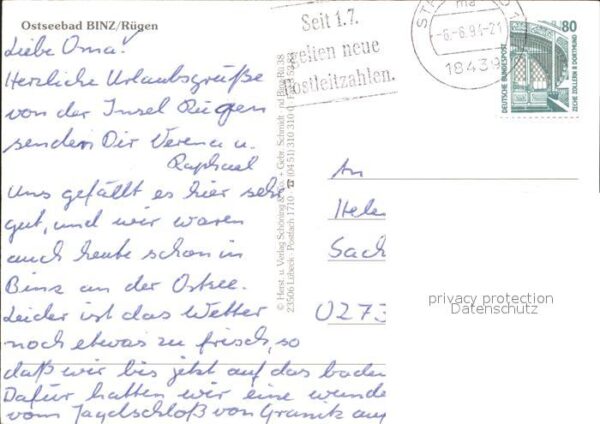 Ostseebad BINZ/Rügen
Liebe Oma!
Herzliche Urlaubsgrüße
von der Insel Rügen
senden Dir Verena u.
Raphael
Uns gefällt es hier sehr
gut, und wir waren
auch heute schon in
Binz an der Ostsee.
Leider ist das Wetter
noch etwas zu frisch, so
daß wir bis jetzt auf das baden
Dafür hatten wir eine wunde
vom Jagdschloß von Granitz auf
Seit 1.7.
gelten neue
Postleitzahlen.
-6.-6.94-21
18439
80
DEUTSCHE BUNDESPOST
ZECHE ZOLLERN II · DORTMUND
© Herst. u. Verlag Schöning & Co. + Gebr. Schmidt
23506 Lübeck · Postfach 1710 · ☎ (04 51) 310 310
An
Hele
Sach
0273
privacy protection
Datenschutz